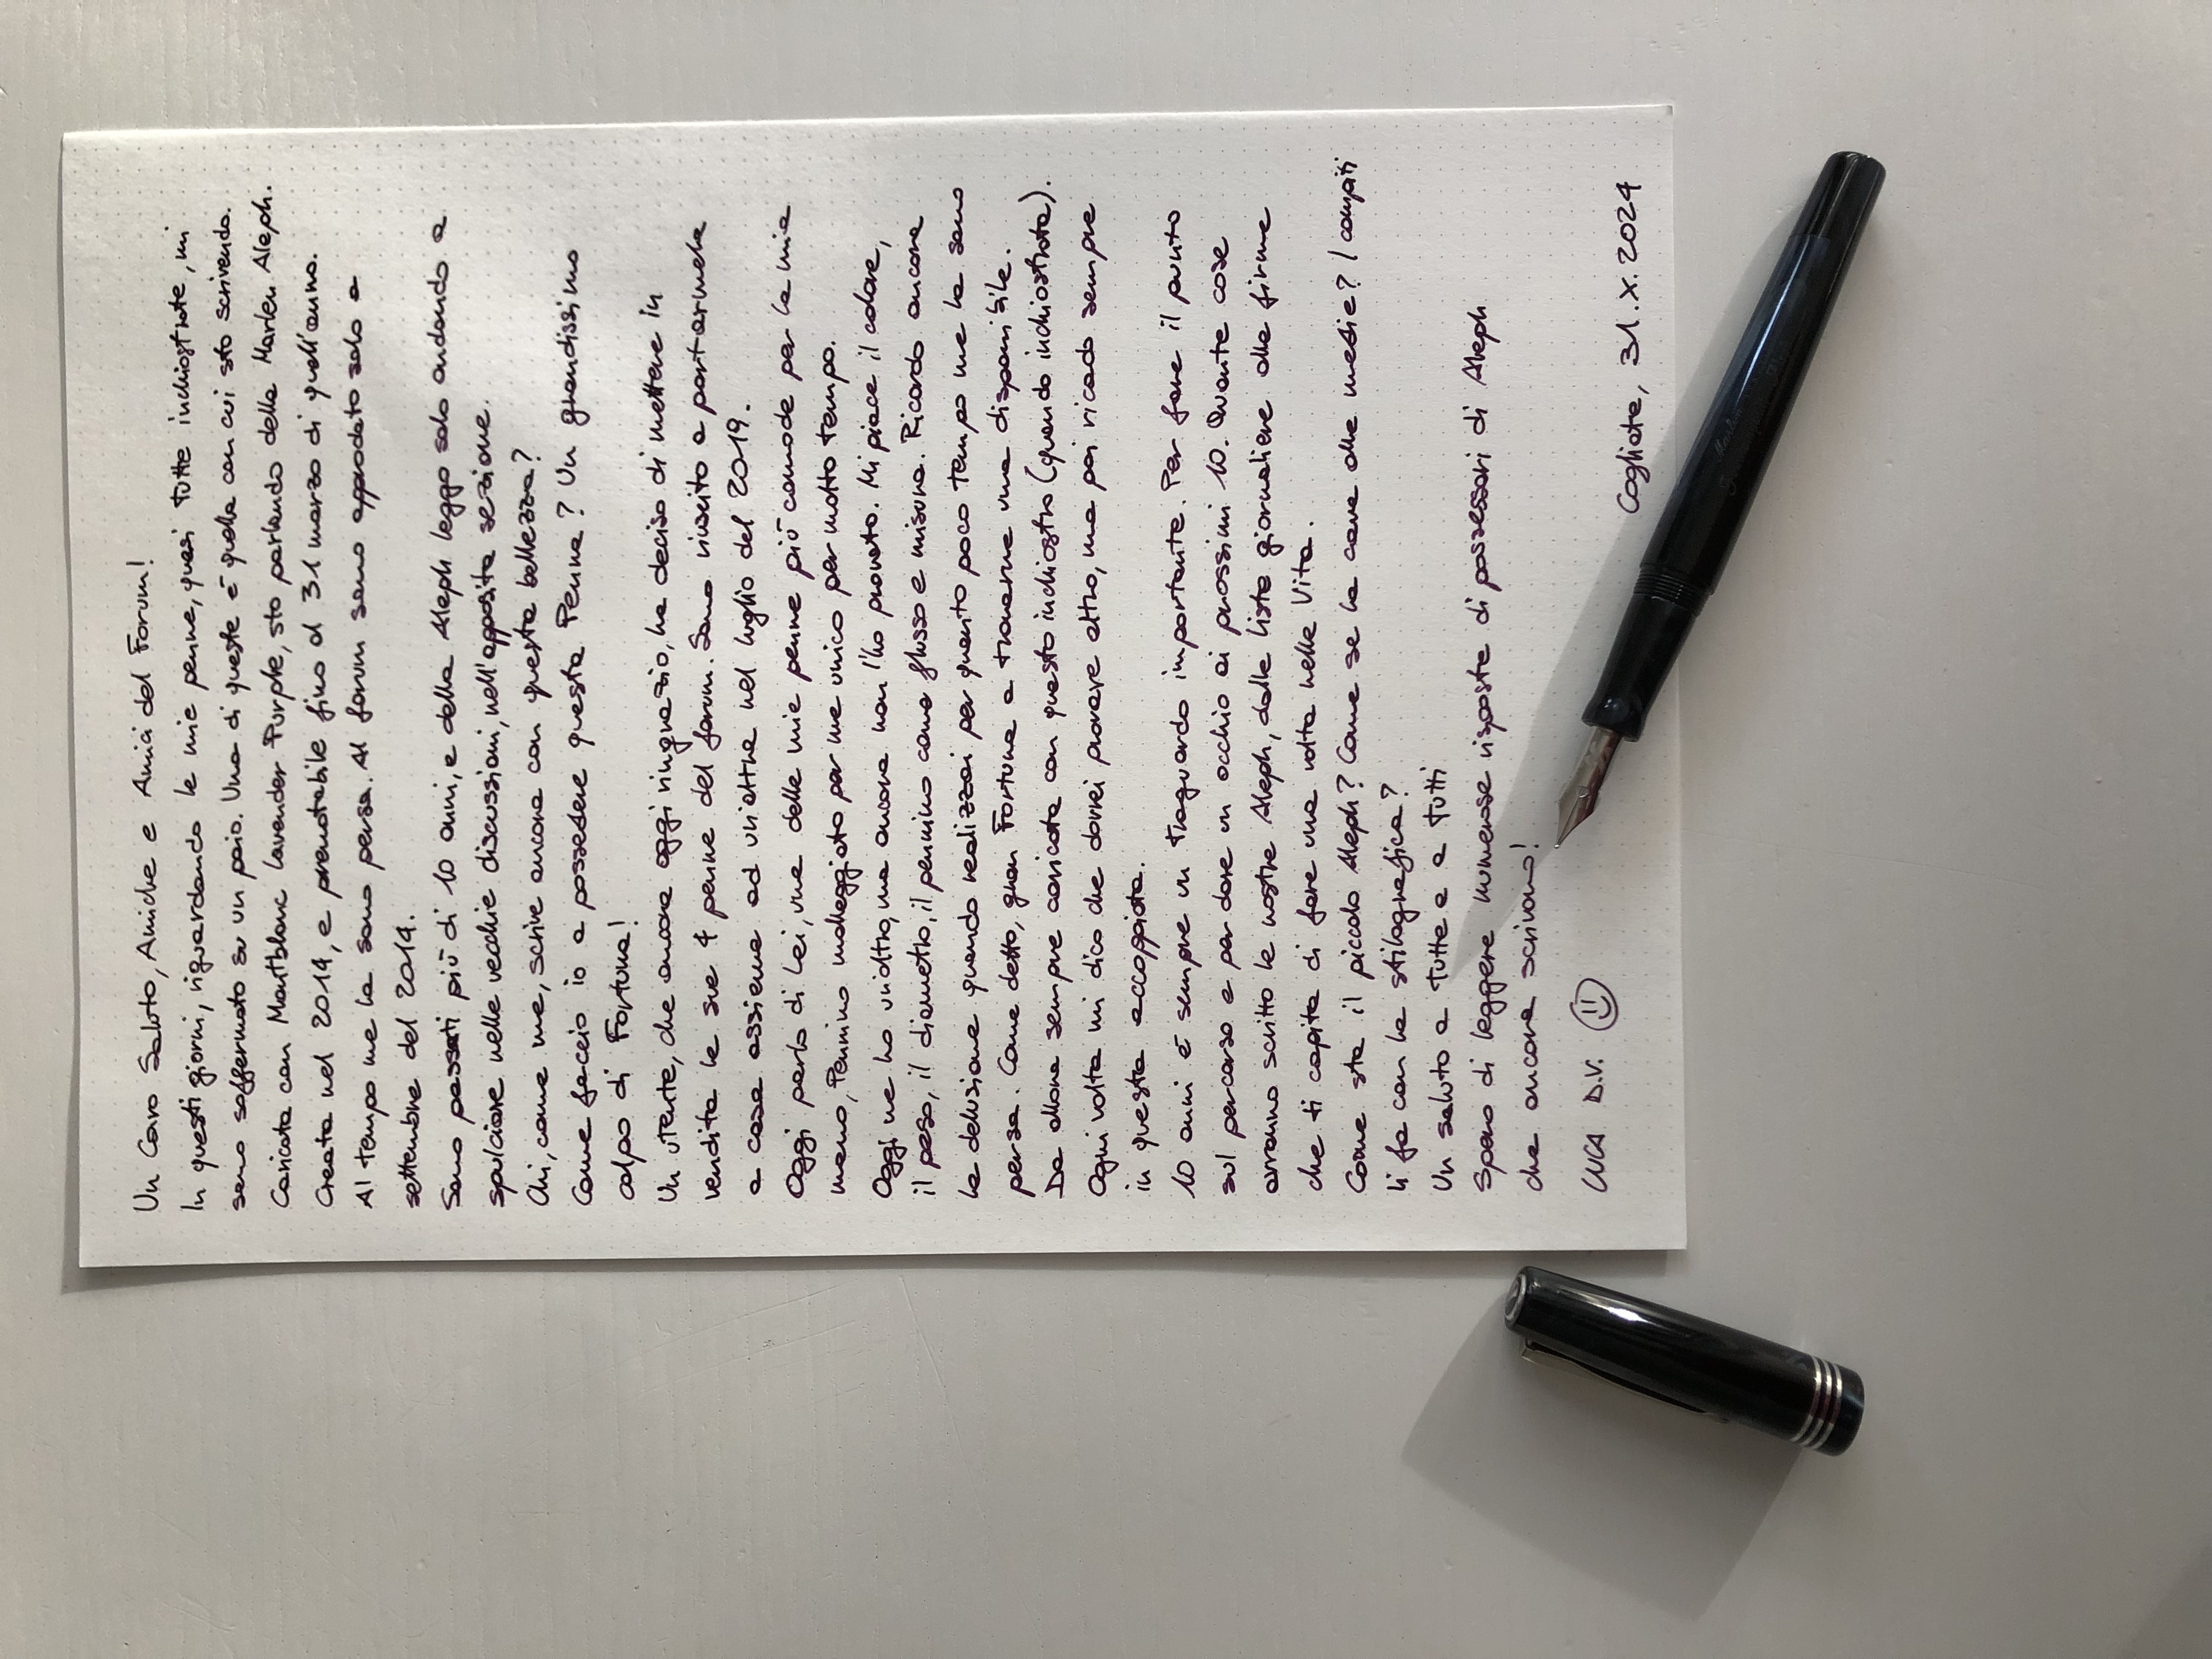 Un Caro Saluto, Amiche e Amici del Forum!
In questi giorni, riguardando le mie penne, quasi tutte inchiostrate, mi
sono soffermato su un paio. Una di queste è quella con cui sto scrivendo.
Caricata con Montblanc Lavender Purple, sto parlando della Marlen Aleph.
Creata nel 2014, e prenotabile fino al 31 marzo di quell'anno.
Al tempo me la sono persa. Al forum sono approdato solo a
settembre del 2014.
Sono passati più di 10 anni, e della Aleph leggo solo andando a
spulciare nelle vecchie discussioni, nell'apposita sezione.
Chi, come me, scrive ancora con questa bellezza?
Come faccio io a possedere questa Penna? Un grandissimo
colpo di Fortuna!
Un utente, che ancora oggi ringrazio, ha deciso di mettere in
vendita le sue 4 penne del forum. Sono riuscito a portarmela
a casa assieme ad un'altra nel luglio del 2019.
Oggi parlo di Lei, una delle mie penne più comode per la mia
mano, Pennino molleggiato per me unico per molto tempo.
Oggi ne ho un altro, ma ancora non l'ho provato. Mi piace il colore,
il peso, il diametro, il pennino come flusso e misura. Ricordo ancora
la delusione quando realizzai per quanto poco tempo me la sono
persa. Come detto, gran Fortuna a trovarne una disponibile.
Da allora sempre caricata con questo inchiostro (quando inchiostrata).
Ogni volta mi dico che dovrei provare altro, ma poi ricado sempre
in questa accoppiata.
10 anni è sempre un traguardo importante. Per fare il punto
sul percorso e per dare un occhio ai prossimi 10. Quante cose
avranno scritto le nostre Aleph, dalle liste giornaliere alle firme
che ti capita di fare una volta nella Vita.
Come sta il piccolo Aleph? Come se la cava alle medie? I compiti
li fa con la stilografica?
Un saluto a tutte e a tutti
Spero di leggere numerose risposte di possessori di Aleph
che ancora scrivono!
LUCA D.V.
Cogliate, 31.X.2024